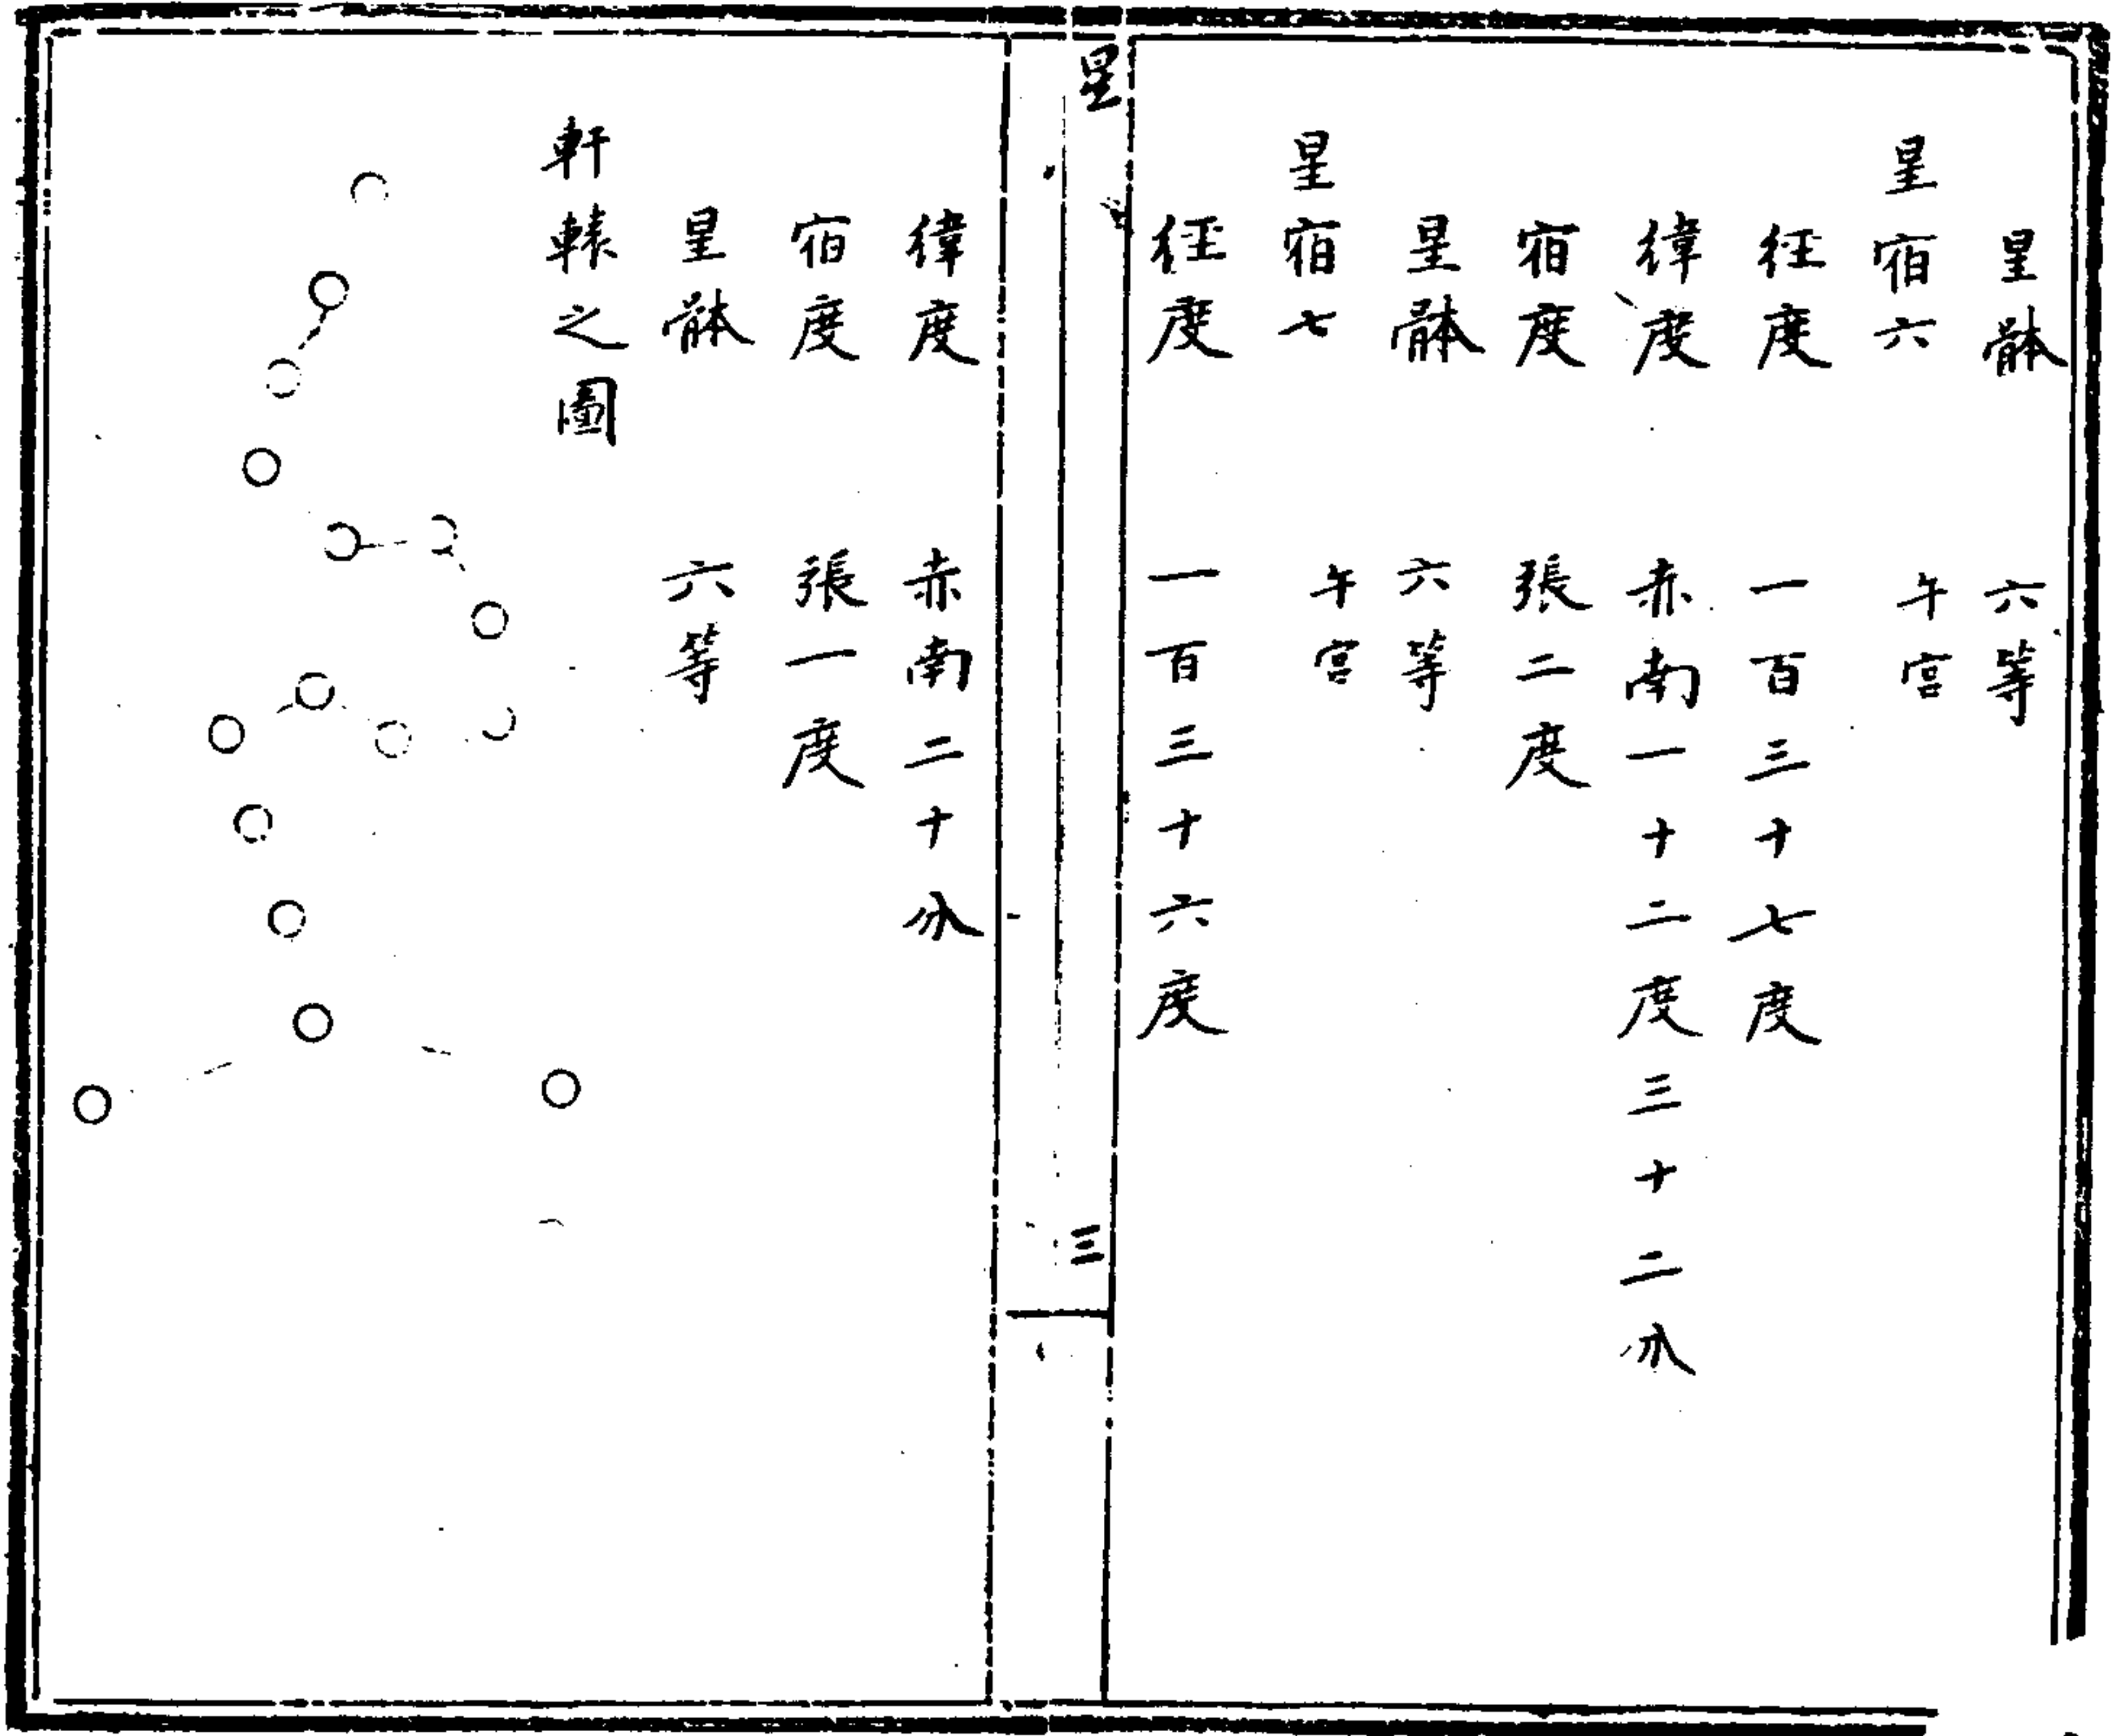 星體 六等
星宿六 午宮
經度 一百三十七度
緯度 赤南一十二度三十二分
宿度 張二度
星體 六等
星宿七 午宮
經度 一百三十六度
星
三
緯度 赤南二十分
宿度 張一度
星體 六等
軒轅之圖